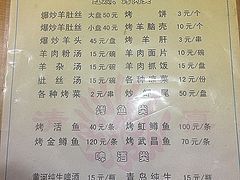 爆炒羊肚丝 大盘50元 烤饼 3元/个
爆炒羊肚丝 小盘40元 烤羊脑壳 10元/个
爆炒羊头 45元/盘 烤羊肝 3元/串
羊肉粉汤 15元/碗 羊肉面片 10元/碗
羊杂汤 15元/碗 羊肉抓饭 15元/盘
肚丝汤 15元/碗 各种凉菜 12元/份
各种烤菜 2元/串 尾 50元/盘
烤鱼类
烤活鱼 40元/条 烤虹鳟鱼 100元/条
烤金鳟鱼 120元/条 烤武昌鱼 70元/条
啤酒类
黄河纯生啤酒 15元/瓶 青岛纯生 15元/瓶